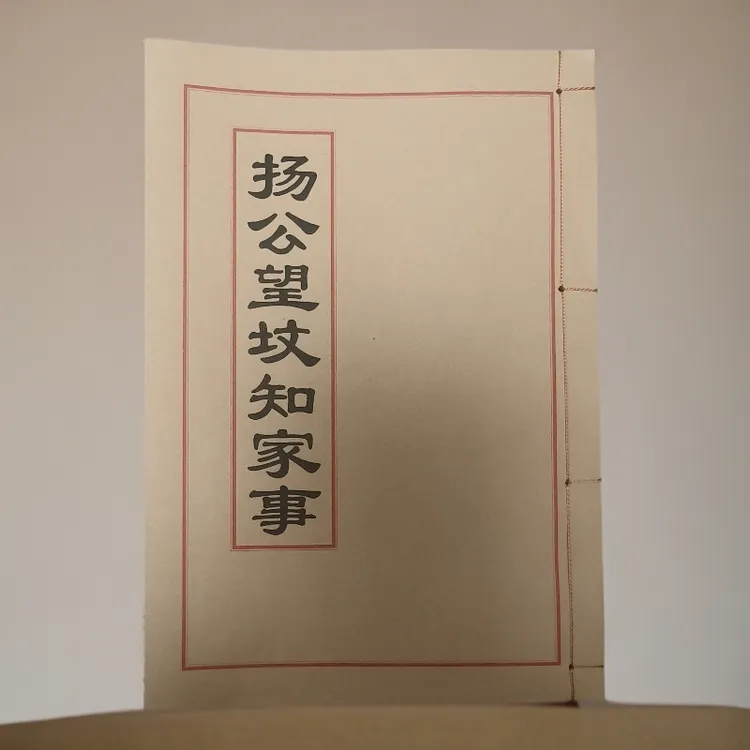 扬公望坟知家事